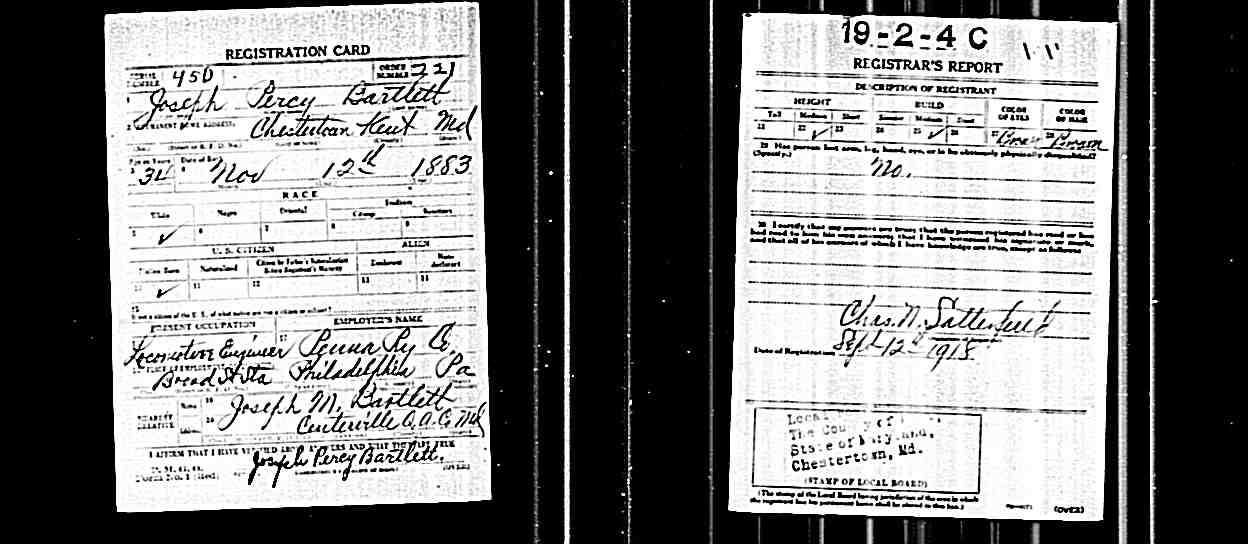 REGISTRATION CARD
SERIAL NUMBER 450 ORDER NUMBER 221
1 Joseph Percy Bartlett
2 PERMANENT HOME ADDRESS:
Chestertown Kent Md
Age in Years Date of Birth
3 34 4 Nov 12th 1883
RACE
White Negro Oriental Indian
Citizen
5 ✓ 6 7 8 9
U. S. CITIZEN ALIEN
Native Born Naturalized Citizen by Father's Naturalization Before Registrant's Majority Declarant Non-declarant
10 ✓ 11 12 13 14
15
If not a citizen of the U. S., of what nation are you a citizen or subject?
PRESENT OCCUPATION EMPLOYER'S NAME
Locomotive Engineer Penna Ry Co
Broad St Sta Philadelphia Pa
NEAREST RELATIVE Name 19 Joseph M. Bartlett
Address 20 Centerville Q. A. Co Md
I AFFIRM THAT I HAVE VERIFIED ABOVE ANSWERS AND THAT THEY ARE TRUE
Joseph Percy Bartlett.
(OVER)
19-2-4 C
REGISTRAR'S REPORT
DESCRIPTION OF REGISTRANT
HEIGHT BUILD COLOR OF EYES COLOR OF HAIR
Tall Medium Short Slender Medium Stout
21 22 ✓ 23 24 25 ✓ 26 27 Brown 28 Brown
29 Has person lost arm, leg, hand, eye, or is he obviously physically disqualified?
(Specify.)
No.
30 I certify that my answers are true; that the person registered has read or has
had read to him his own answers; that I have witnessed his signature or mark,
and that all of his answers of which I have knowledge are true, except as follows:
Chas. N. Satterfield
Date of Registration Sept 12th 1918
Local
The County of
State of Maryland,
Chestertown, Md.
(STAMP OF LOCAL BOARD)
(The stamp of the Local Board having jurisdiction of the area in which
the registrant has his permanent home shall be placed in this box.)
(OVER)